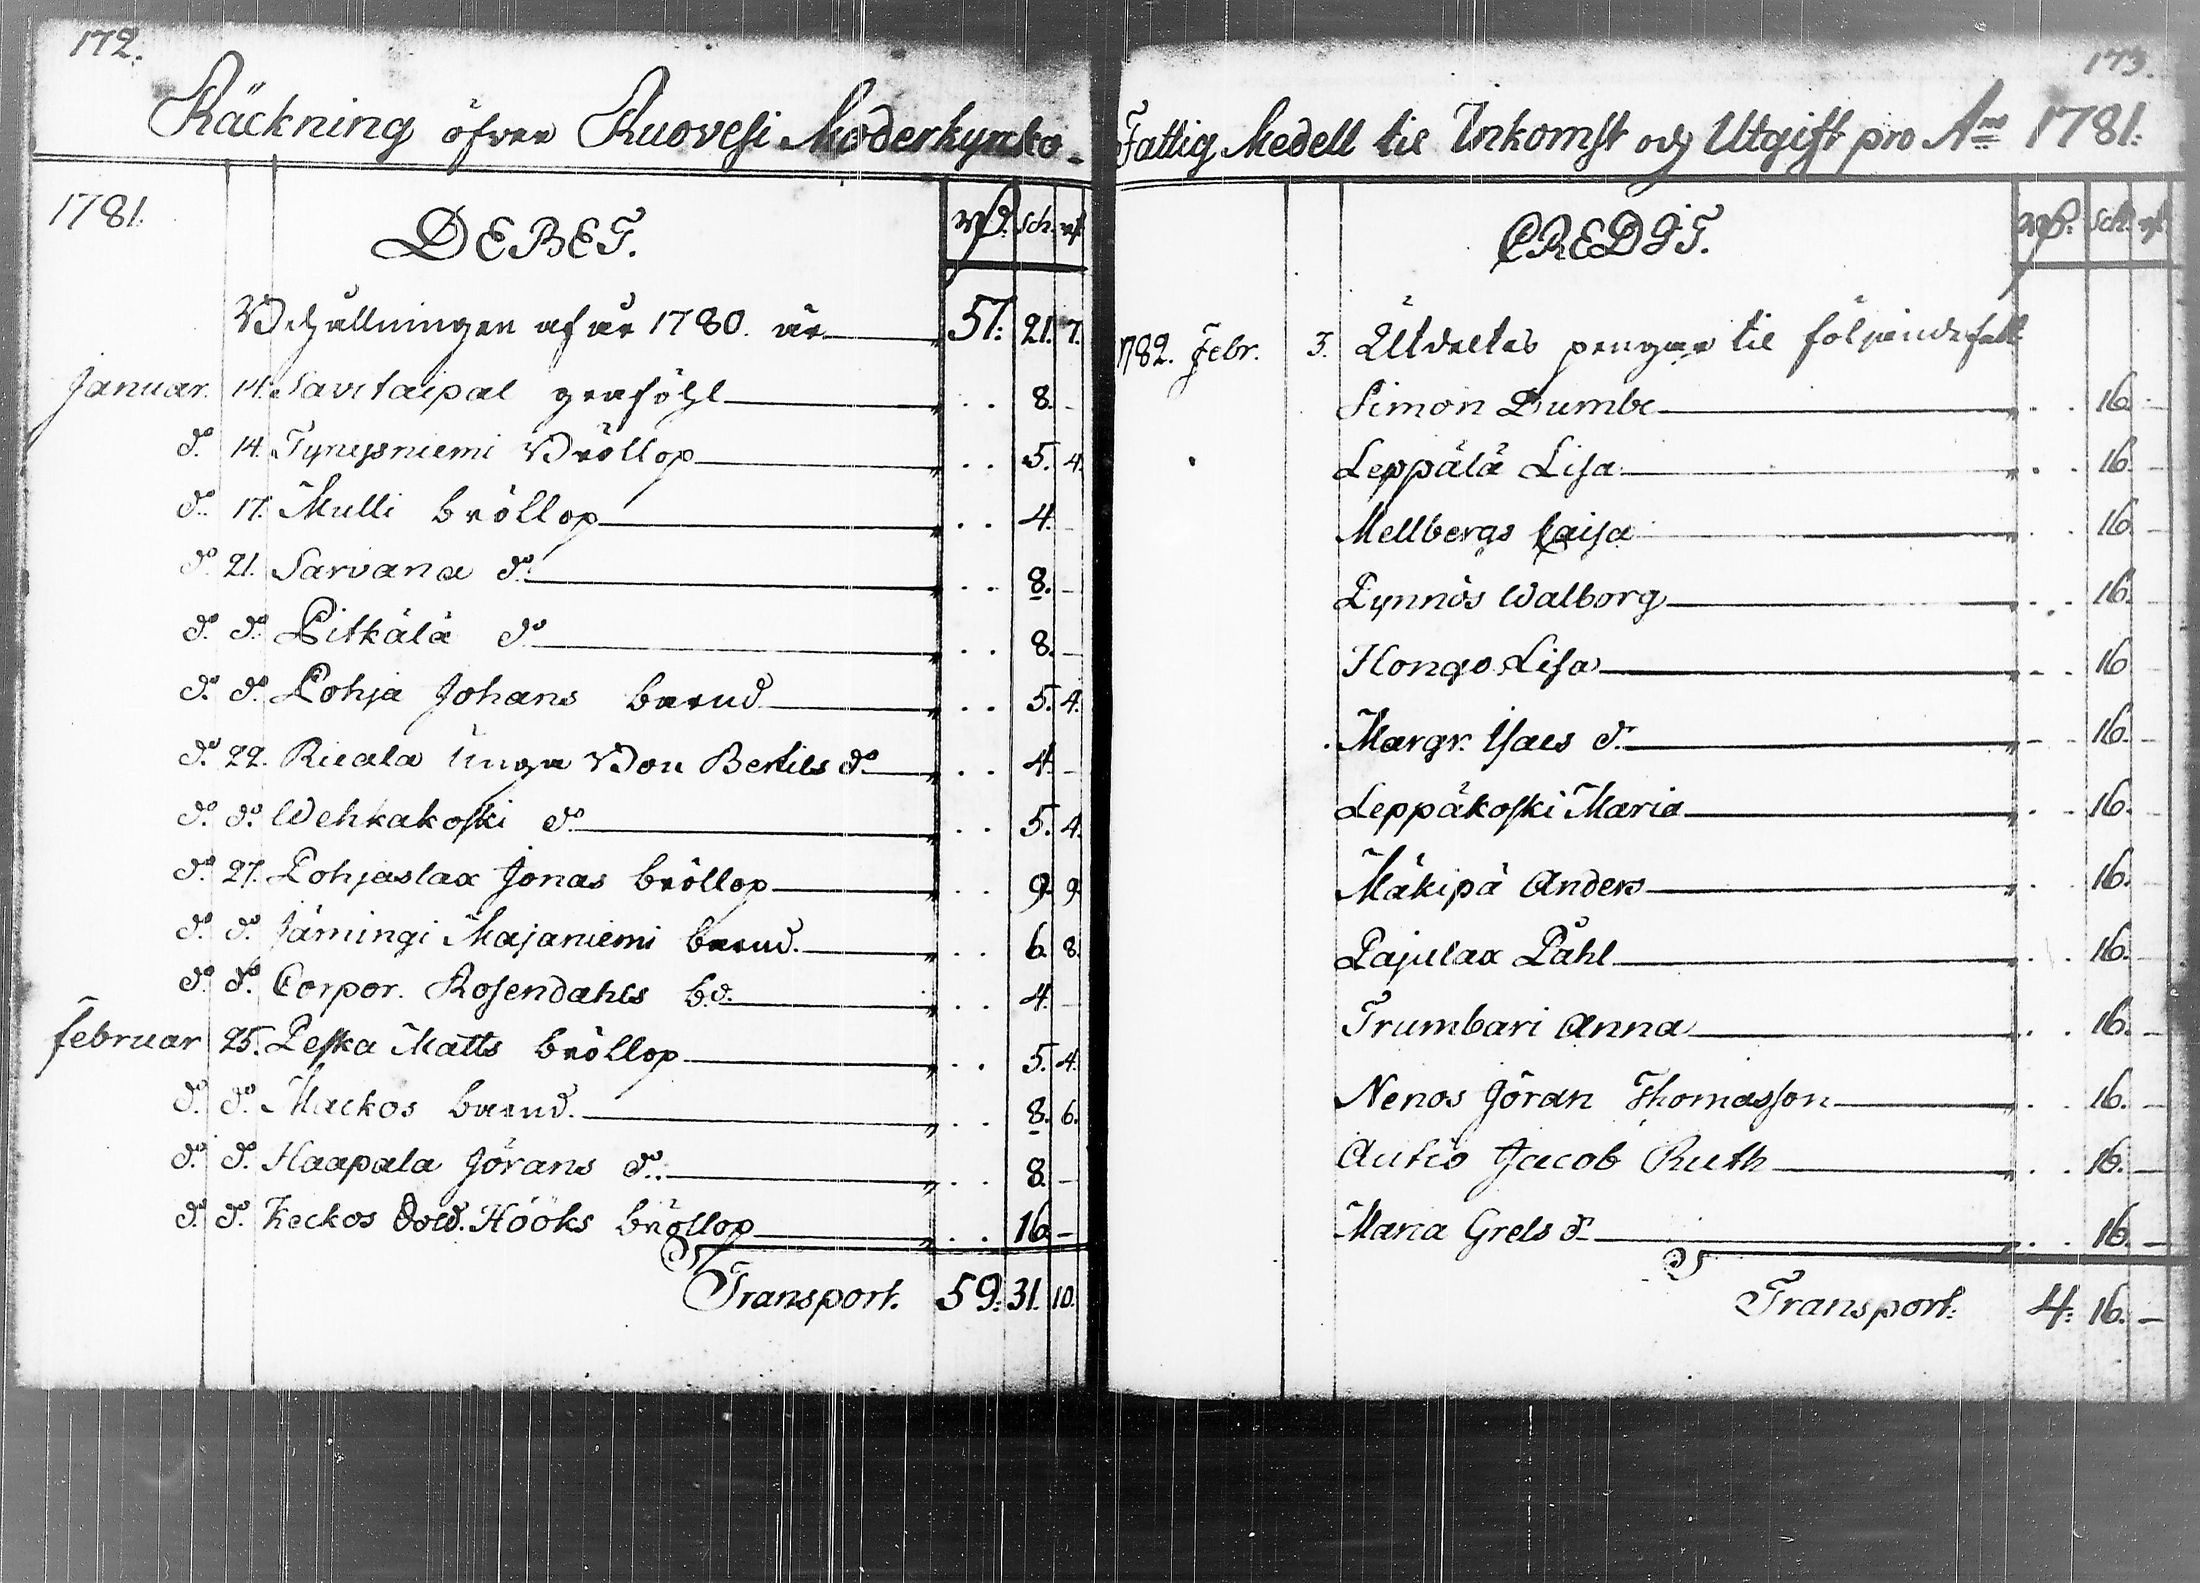 172.
Räckning öfver Ruovesi Moderkyrko-
1781.
DEBET.
Rd. Sch. rst
Behållningen af år 1780. är 57: 21. 7.
Januar. 14. Savitaipal graföhl " . . 8. -
do 14. Tynysniemi Bröllop " . . 5. 4.
do 17. Mulli bröllop " . . 4. -
do 21. Sarvana do " . . 8. -
do do Pitkälä do " . . 8. -
do do Pohja Johans barnd " . . 5. 4.
do 22. Ruala unga Bertils do " . . 4. -
do do Wehkakoski do " . . 5. 4.
do 27. Pohjaslax Jonas bröllop " . . 9. 9.
do do Jämingi Majaniemi barnd. " . . 6. 8.
do do Corpor. Rosendahls b.d. " . . 4. -
februar 25. Peska Matts bröllop " . . 5. 4.
do do Mackos barnd. " . . 8. 6.
do do Haapala Jörans do " . . 8. -
do do Keckos Sold. Hööks bröllop " . . 16. -
Transport. 59: 31. 10.
173.
Fattig Medell til Inkomst och Utgift pro Ano 1781:
CREDIT.
Rd. Sch. rst
1782. Febr. 3. Utdeltes pengar til följande fatt.
Simon Dumbe " . . 16. -
Leppälä Lisa " . . 16. -
Mellbergs Caisa " . . 16. -
Pynnös Walborg " . . 16. -
Hongo Lisa " . . 16 -
Margr. Isacs d. " . . 16. -
Leppäkoski Maria " . . 16. -
Mäkipä Anders " . . 16. -
Pajulax Påhl " . . 16. -
Trumbari Anna " . . 16. -
Nenos Jöran Thomasson " . . 16. -
Autio Jacob Ruth " . . 16. -
Maria Grels d. " . . 16. -
Transport: 4: 16. -